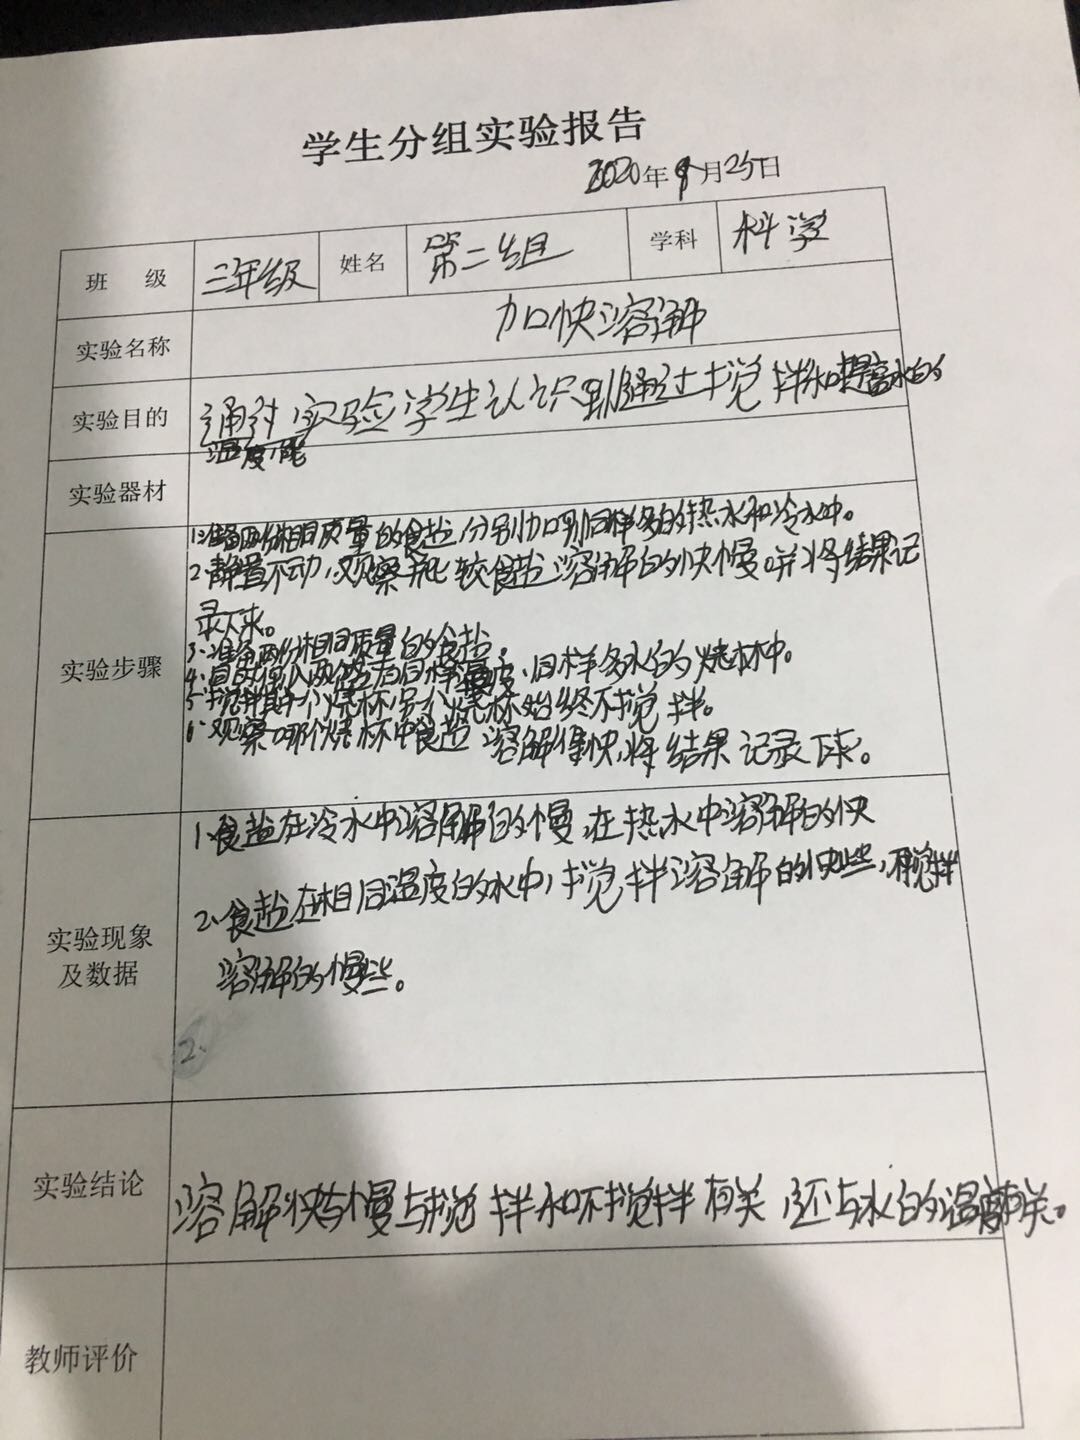 学生分组实验报告
2020年9月25日
班 级 三年级 姓名 第二组 学科 科学
实验名称 加快溶解
实验目的 通过实验学生认识到通过搅拌和提高水的
温度,能
实验器材
实验步骤
1.准备两份相同质量的食盐,分别加到同样多的热水和冷水中。
2.静置不动,观察并比较食盐溶解的快慢,并将结果记
录下来。
3.准备两份相同质量的食盐。
4.同时倒入两个装有同样温度、同样多水的烧杯中。
5.搅拌其中一个烧杯,另一个烧杯始终不搅拌。
6.观察哪个烧杯中食盐溶解得快,将结果记录下来。
实验现象
及数据
1.食盐在冷水中溶解的慢,在热水中溶解的快
2.食盐在相同温度的水中,搅拌溶解的快些,不搅拌
溶解的慢些。
2.
实验结论 溶解快与慢与搅拌和不搅拌有关,还与水的温度有关。
教师评价